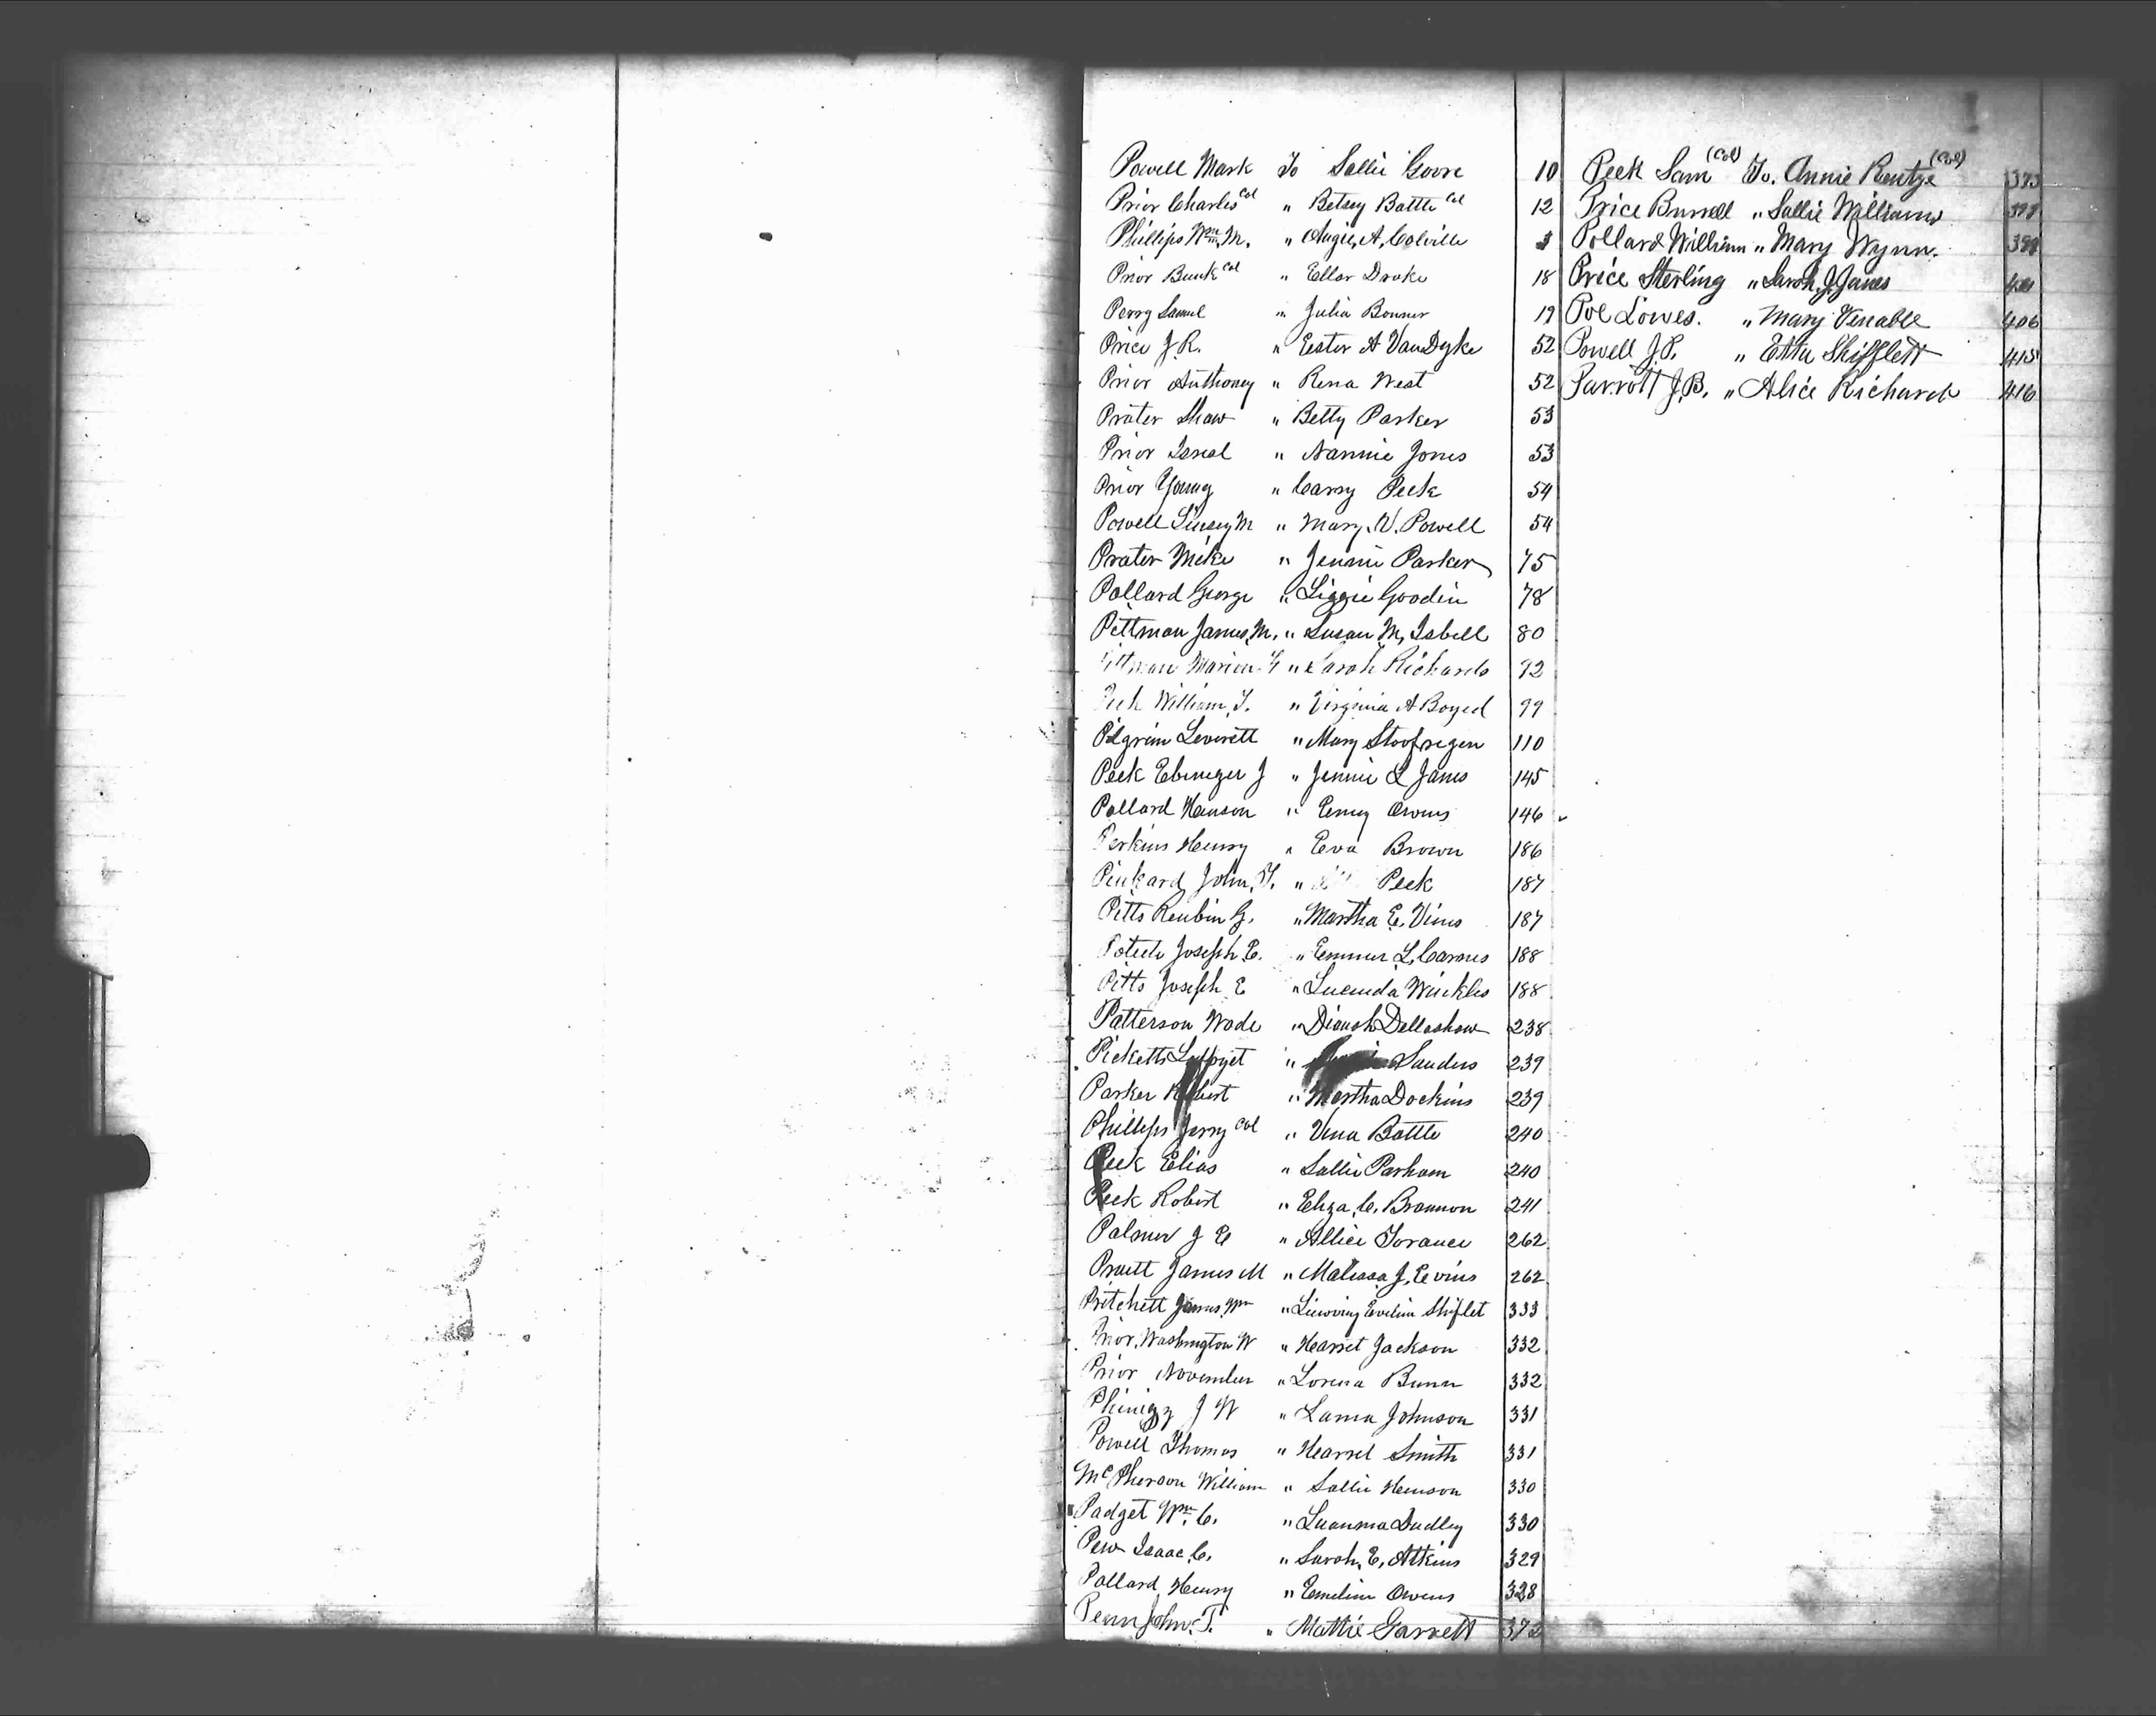 Powell Mark To Sallie Goore 10
Prior Charles Col " Betsey Battle Col 12
Phillips Wm M. " Angie, A, Colville 3
Prior Bunk Col " Ellar Drake 18
Perry Samuel " Julia Bonner 19
Price J. R. " Ester A VanDyke 52
Prior Anthoney " Rena West 52
Prater Shaw " Betty Parker 53
Prior Isreal " Nannie Jones 53
Prior Young " Carry Peek 54
Powell Linsey M " Mary. V. Powell 54
Prater Mike " Jennie Parker 75
Pollard George " Lizzie Goodin 78
Pittman James, M. " Susan M, Isbell 80
Pittman Marion " Sarah Richards 92
Peek William, T. " Virginia A Boyed 99
Pilgrim Leverett " Mary Stoofregen 110
Peek Ebenezer J " Jennie L Janes 145
Pollard Hanson " Emey Owens 146
Perkins Henry " Eva Brown 186
Pinkard John, T. " Peek 187
Pitts Reubin G. " Martha E. Vines 187
Poteete Joseph E. " Emmer L, Carnes 188
Pitts Joseph E " Lucinda Winkles 188
Patterson Wade " Dianah Dellashaw 238
Picketts " Sanders 239
Parker Robert " Martha Dockins 239
Phillips Jerry Col " Vena Battle 240
Peek Elias " Sallie Parham 240
Peek Robert " Eliza, C, Brannon 241
Palmer J E " Allice Torance 262
Pruett James M " Malissa J, Evins 262
Pritchett James, Wm " Eveline Shiflet 333
Prior, Washington W " Harriet Jackson 332
Prior November " Lorena Bunn 332
Phinizy J W " Laura Johnson 331
Powell Thomas " Harriet Smith 331
McPherson William " Sallie Henson 330
Padget Wm. C. " Luanma Dudley 330
Pew Isaac, C. " Sarah, E, Atkins 329
Pollard, Henry " Emeline Owens 328
Penn John. T. " Mattie Garrett 372
Peek Sam (Col) To. Annie Rentze (Col) 373
Price Burrell " Sallie Williams
Pollard William " Mary Wynn.
Price Sterling " Sarah J. Janes
Poe Lowes. " Mary Venable 406
Powell J. P. " Etta Shifflett 415
Parrott J. B. " Alice Richards 416